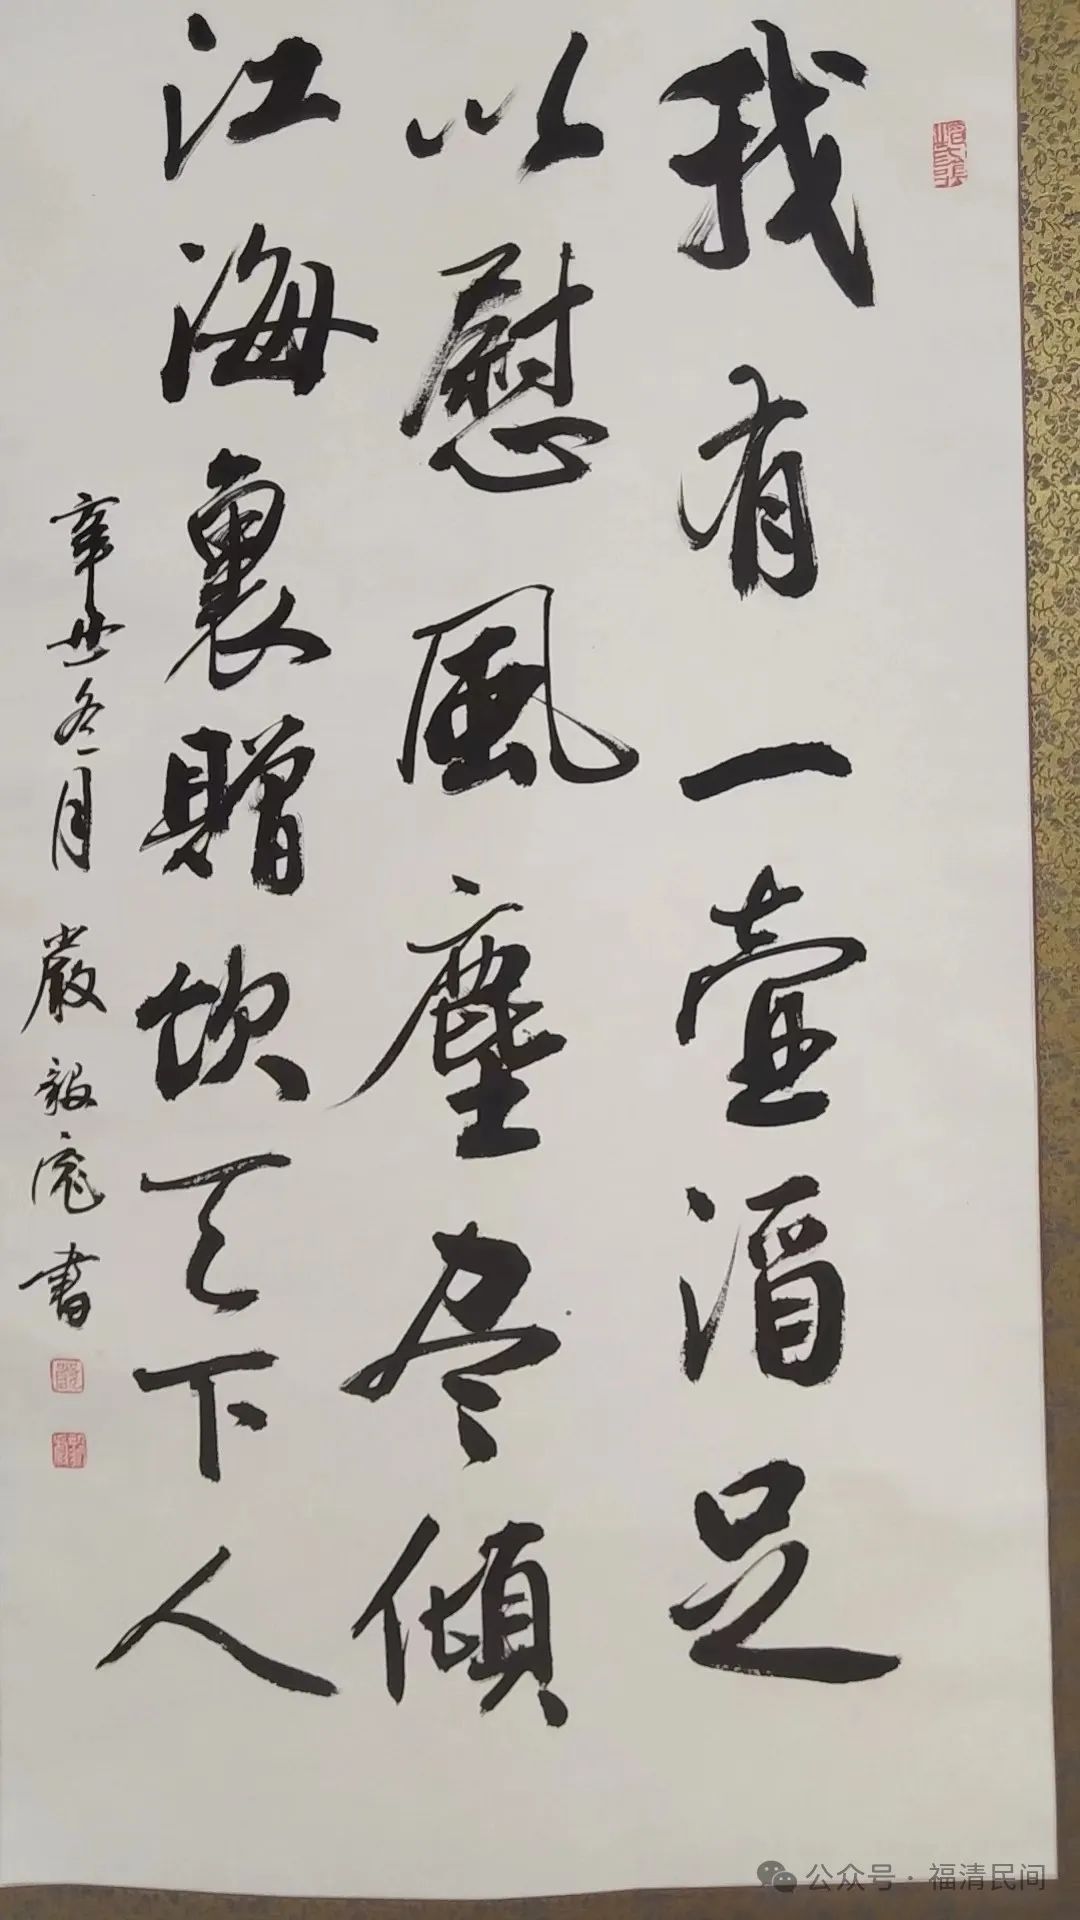 我有一壺酒足
以慰風塵尽傾
江海裏贈飲天下人
辛丑冬月嚴毅寃書
公众号·福清民间